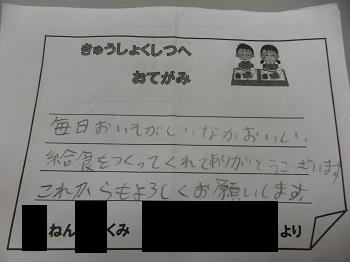 きゅうしょくしつへ
おてがみ
毎日おいそがしいなかおいしい
給食をつくってくれてありがとうございます
これからもよろしくお願いします
ねん くみ より